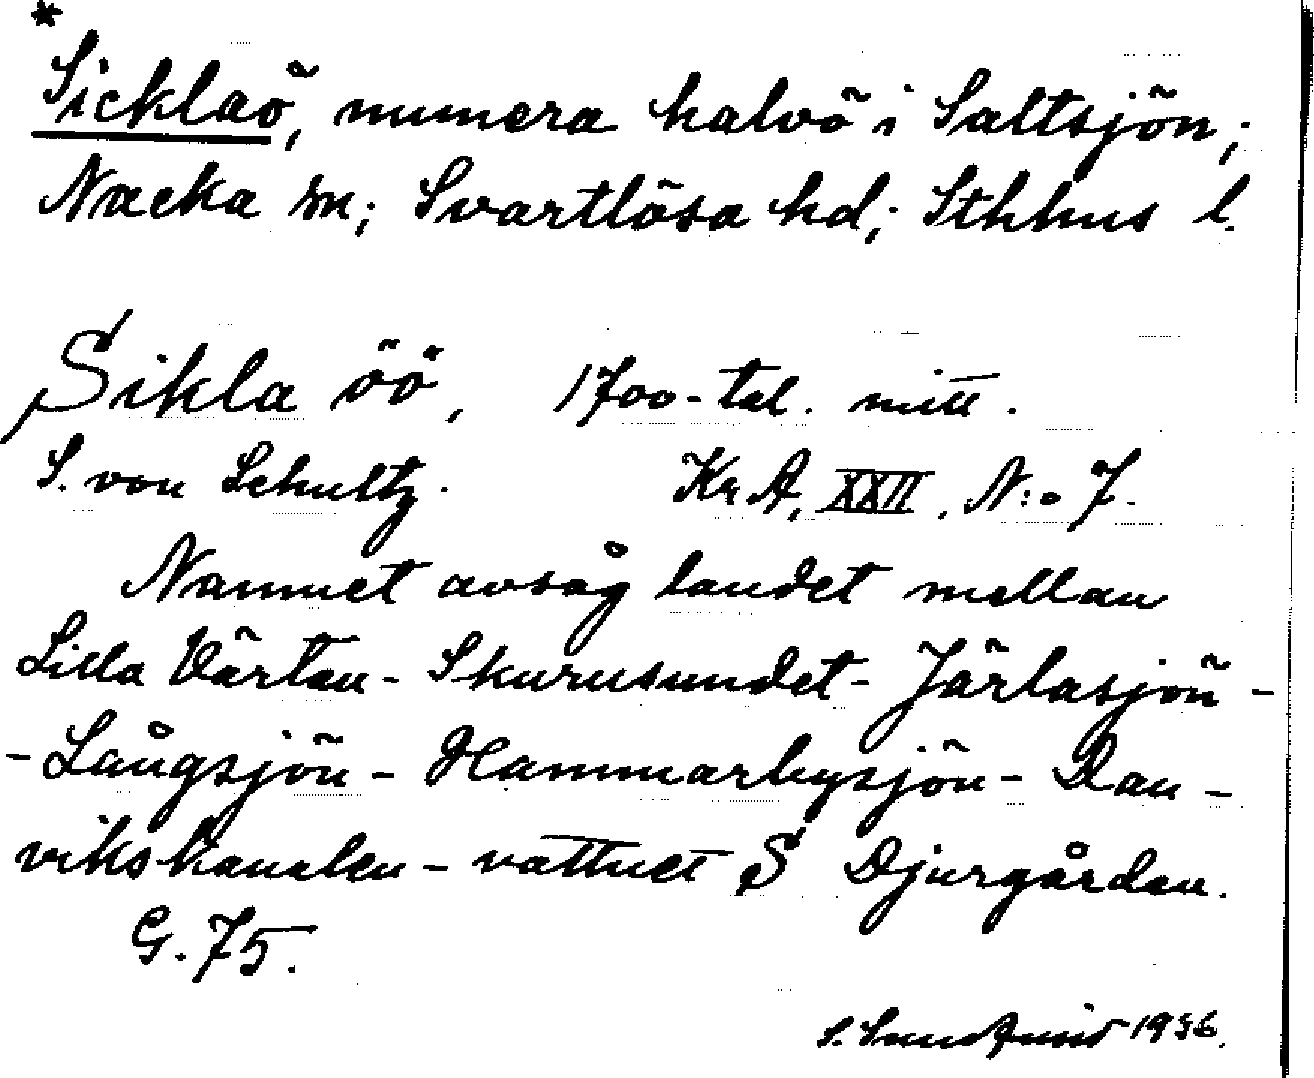 *
Sicklaö, numera halvö i Saltsjön;
Nacka sn; Svartlösa hd; Sthlms l.
Sikla öö, 1700-tal. mitt.
S. von Schultz. Kr.A, XXII. N:o 7.
Namnet avsåg landet mellan
Lilla Värtan - Skurusundet - Järlasjön -
- Långsjön - Hammarbysjön - Dan -
vikskanalen - vattnet S Djurgården.
G. 75.
S. 1936.